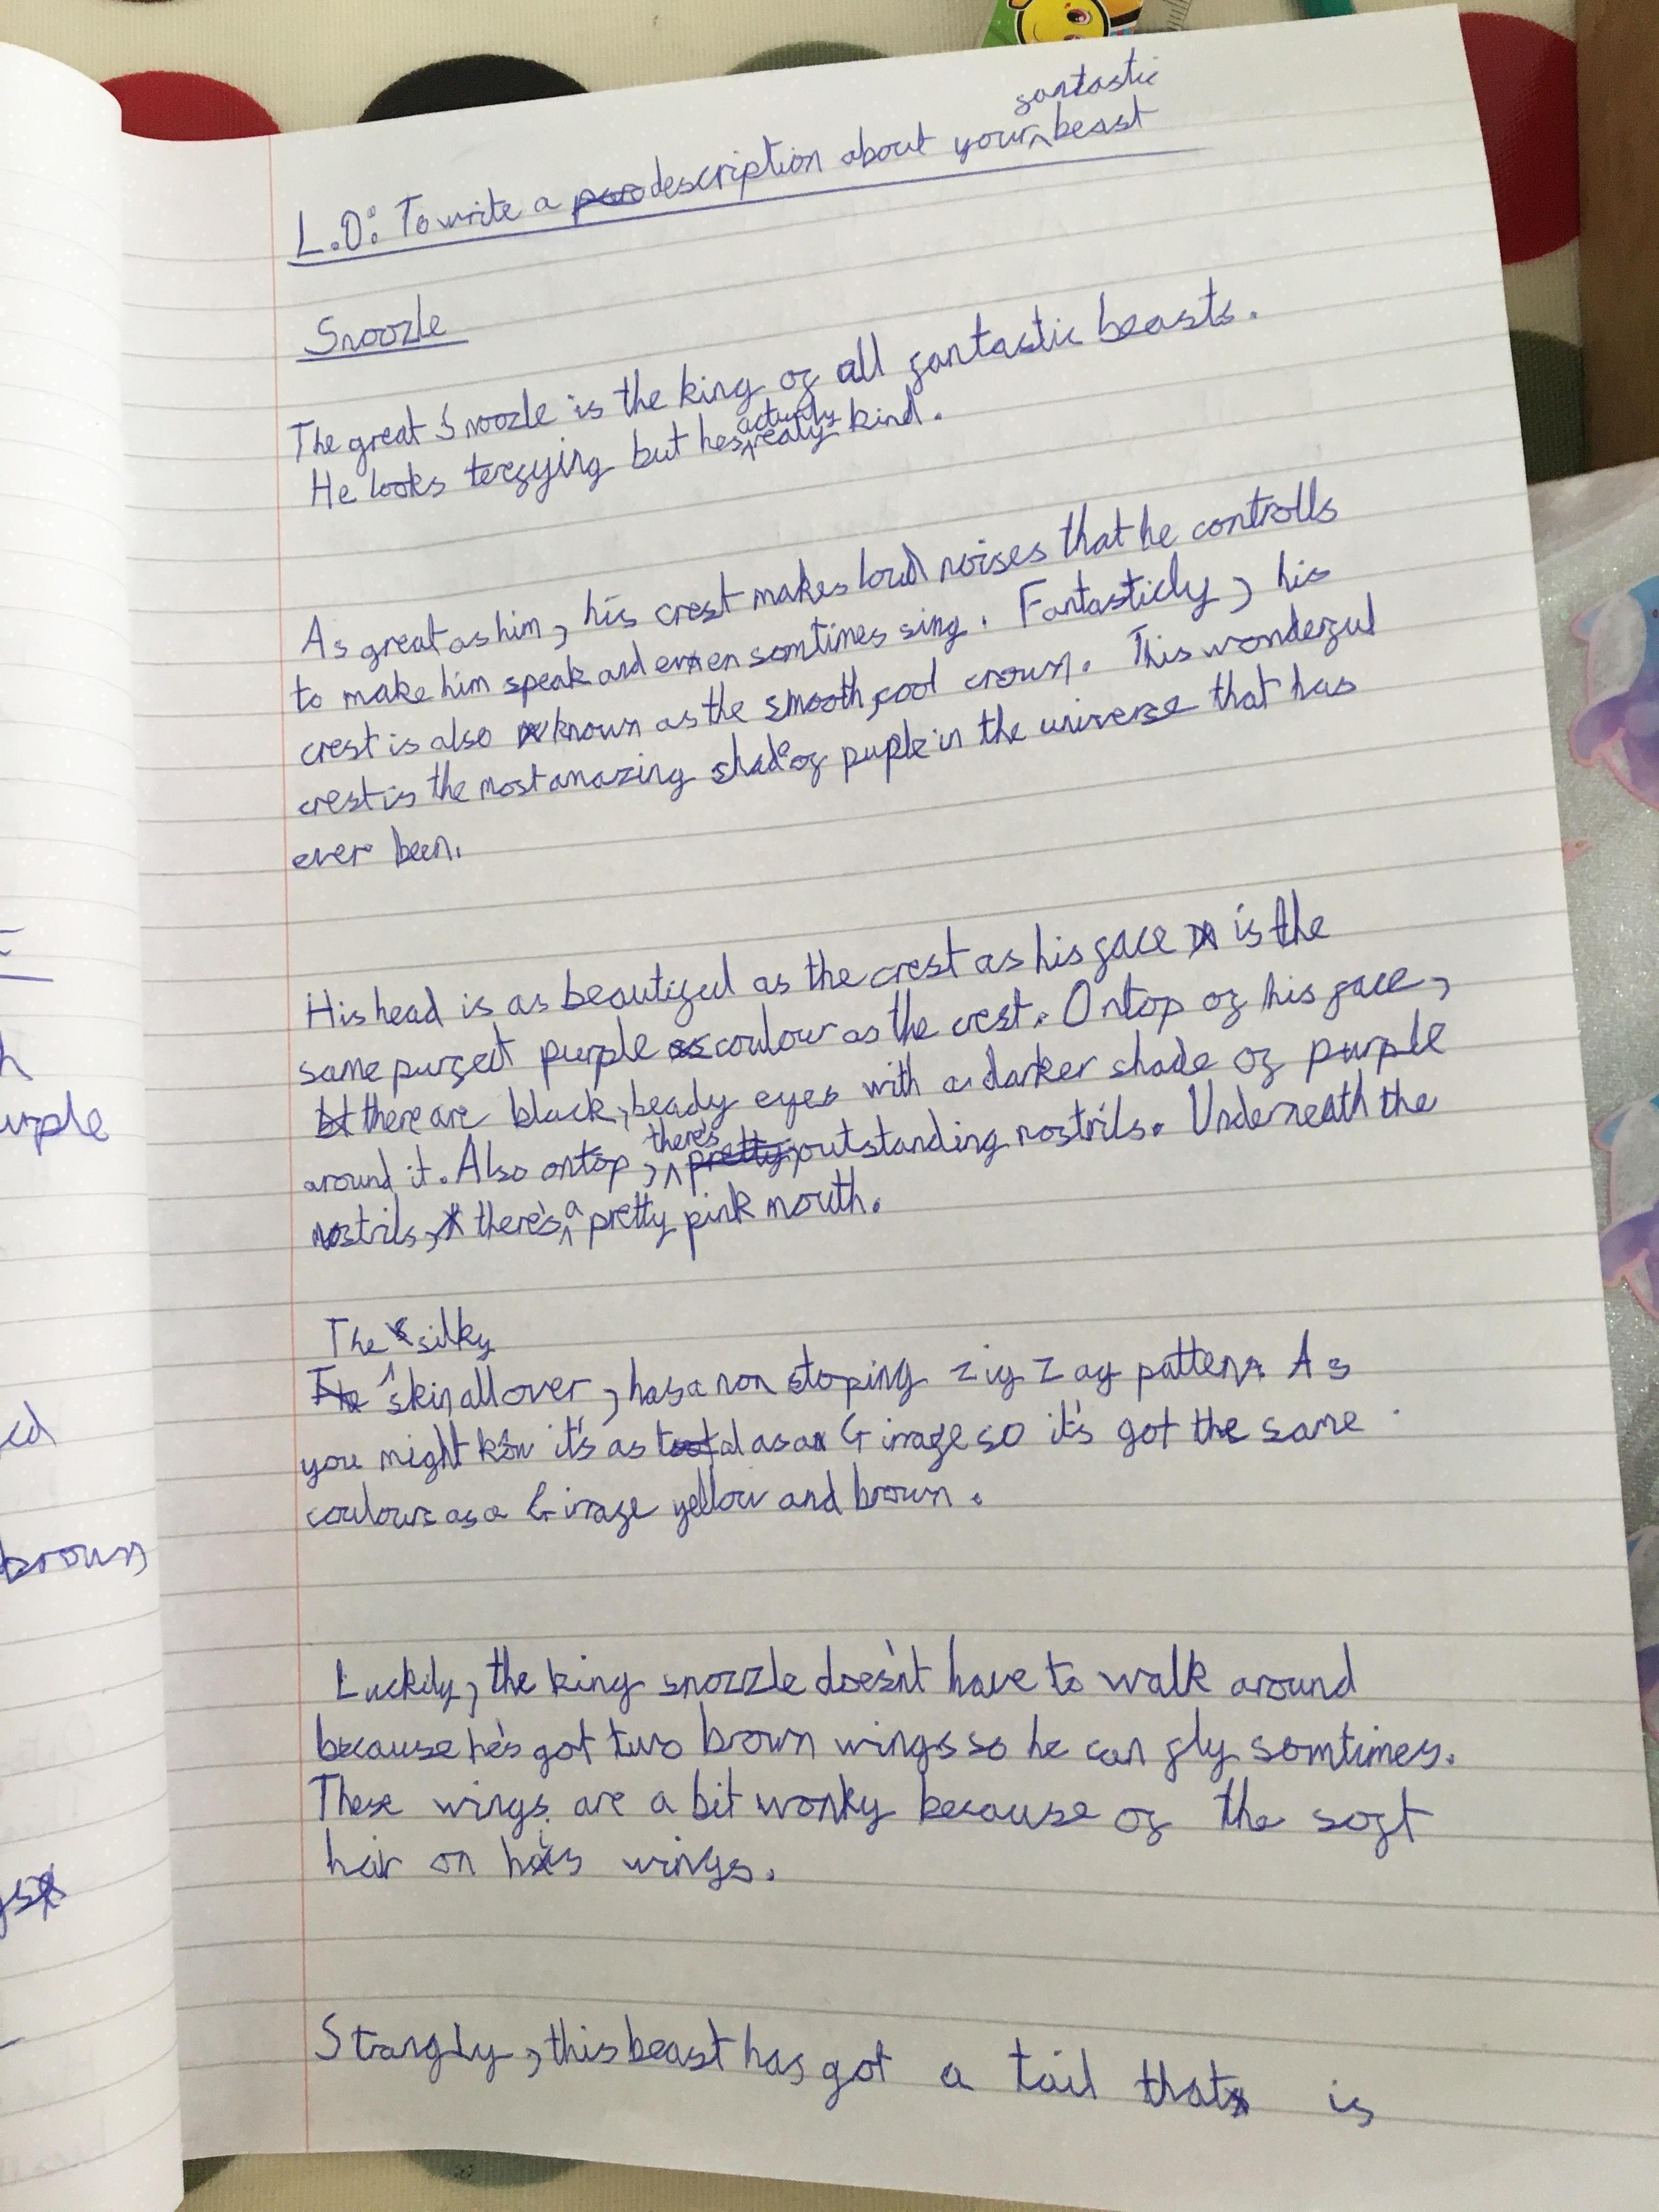 L.O: To write a description about your fantastic beast
Snoozle
The great Snoozle is the king of all fantastic beasts.
He looks terfying but hes actually realy kind.
As great as him, his crest makes loud noises that he controlls
to make him speak and even somtimes sing. Fantasticly, his
crest is also known as the smooth, cool crown. This wonderful
crest is the most amazing shade of puple in the universe that has
ever been.
His head is as beautiful as the crest as his face is the
same purfect purple coulour as the crest. On top of his face,
there are black, beady eyes with a darker shade of purple
around it. Also on top, there's outstanding nostrils. Underneath the
nostrils, there's a pretty pink mouth.
The silky
skin all over, has a non stoping zig zag pattern. As
you might know it's as tal as a Girrafe so it's got the same
coulours as a Girrafe yellow and brown.
Luckily, the king snozzle doesn't have to walk around
because he's got two brown wings so he can fly somtimes.
These wings are a bit wonky because of the soft
hair on his wings.
Strangly, this beast has got a tail that is
urple
brown